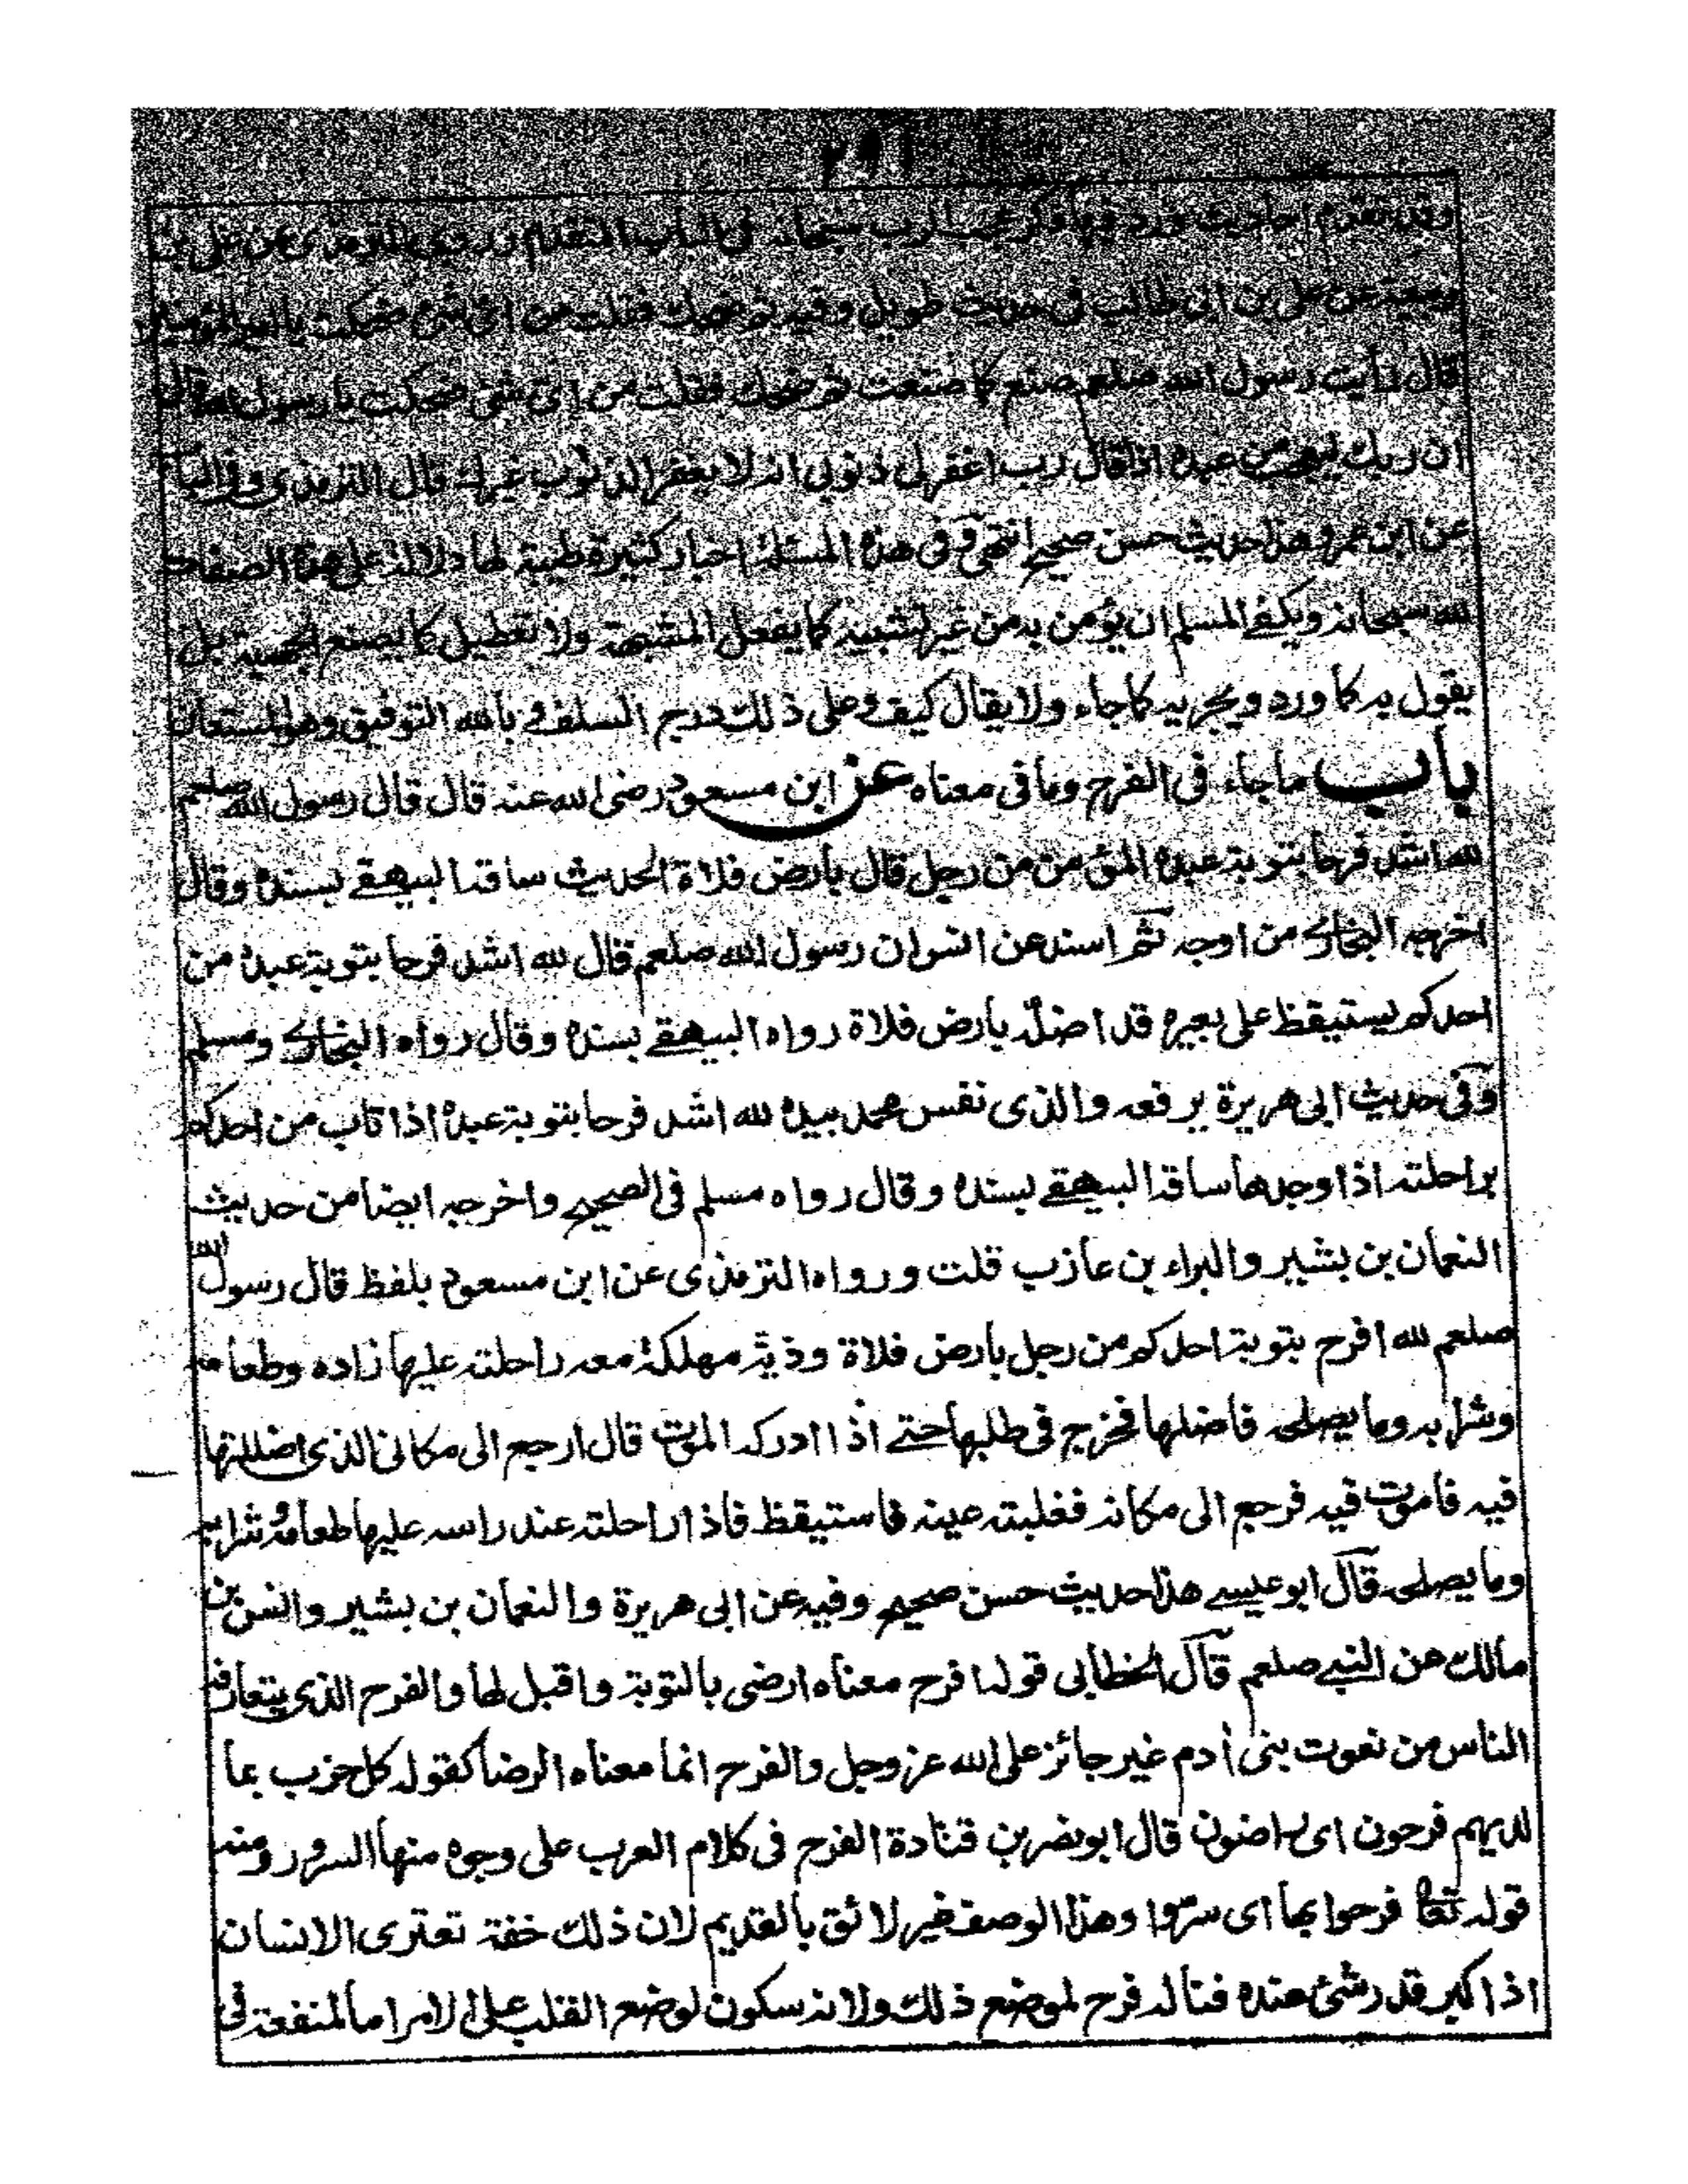 وقد تقدم احاديث ورد فيها ذكر عجب الرب سبحانه فى الباب المتقدم وروى الترمذى عن على بن
ربيعة عن على بن ابى طالب فى حديث طويل وفيه ثم ضحك فقلت من اى شئ ضحكت يا امير المؤمنين
قال رأيت رسول الله صلعم صنع كما صنعت ثم ضحك فقلت من اى شئ ضحكت يا رسول الله قال
ان ربك ليعجب من عبده اذا قال رب اغفر لى ذنوبى انه لا يغفر الذنوب غيرك قال الترمذى وفى الباب
عن ابن عمر وهذا حديث حسن صحيح انتهى وفى هذه المسئلة اخبار كثيرة طيبة لها دلالة على هذه الصفات
لله سبحانه ويكفى المسلم ان يؤمن به من غير تشبيه كما يفعل المشبهة ولا تعطيل كما يصنع الجهمية بل
يقول به كما ورد ويجريه كما جاء ولا يقال كيف وعلى ذلك درج السلف وبالله التوفيق وهو المستعان
باب ما جاء فى الفرح وما فى معناه عن ابن مسعود رضى الله عنه قال قال رسول الله صلعم
لله اشد فرحا بتوبة عبده المؤمن من رجل قال بأرض فلاة الحديث ساقه البيهقے بسنده وقال
اخرجه البخارے من اوجه ثم اسند عن انس ان رسول الله صلعم قال لله اشد فرحا بتوبة عبده من
احدكم يستيقظ على بعيره قد اضلّه بأرض فلاة رواه البيهقے بسنده وقال رواه البخارے ومسلم
وفى حديث ابى هريرة يرفعه والذى نفس محمد بيده لله اشد فرحا بتوبة عبده اذا تاب من احدكم
براحلته اذا وجدها ساقه البيهقے بسنده وقال رواه مسلم فى الصحيح واخرجه ايضا من حديث
النعمان بن بشير والبراء بن عازب قلت ورواه الترمذى عن ابن مسعود بلفظ قال رسول الله
صلعم لله افرح بتوبة احدكم من رجل بأرض فلاة ودوية مهلكة معه راحلته عليها زاده وطعامه
وشرابه وما يصلحه فاضلها فخرج فى طلبها حتے اذا ادركه الموت قال ارجع الى مكانى الذى اضللتها
فيه فاموت فيه فرجع الى مكانه فغلبته عينه فاستيقظ فاذا راحلته عند راسه عليها طعامه وشرابه
وما يصلحه قال ابو عيسے هذا حديث حسن صحيح وفيه عن ابى هريرة والنعمان بن بشير وانس بن
مالك عن النبے صلعم قال الخطابى قوله افرح معناه ارضى بالتوبة واقبل لها والفرح الذى يتعارفه
الناس من نعوت بنى أدم غير جائز على الله عز وجل والفرح انما معناه الرضا كقوله كل حزب بما
لديهم فرحون اى راضون قال ابو نصر بن قتادة الفرح فى كلام العرب على وجوه منها السرور ومنه
قوله تعا فرحوا بها اى سرّوا وهذا الوصف غير لائق بالقديم لان ذلك خفة تعترى الانسان
اذا كبر قدر شئ عنده فناله فرح لموضع ذلك ولانه سكون لوضع القلب على الامر اما لمنفعة فى